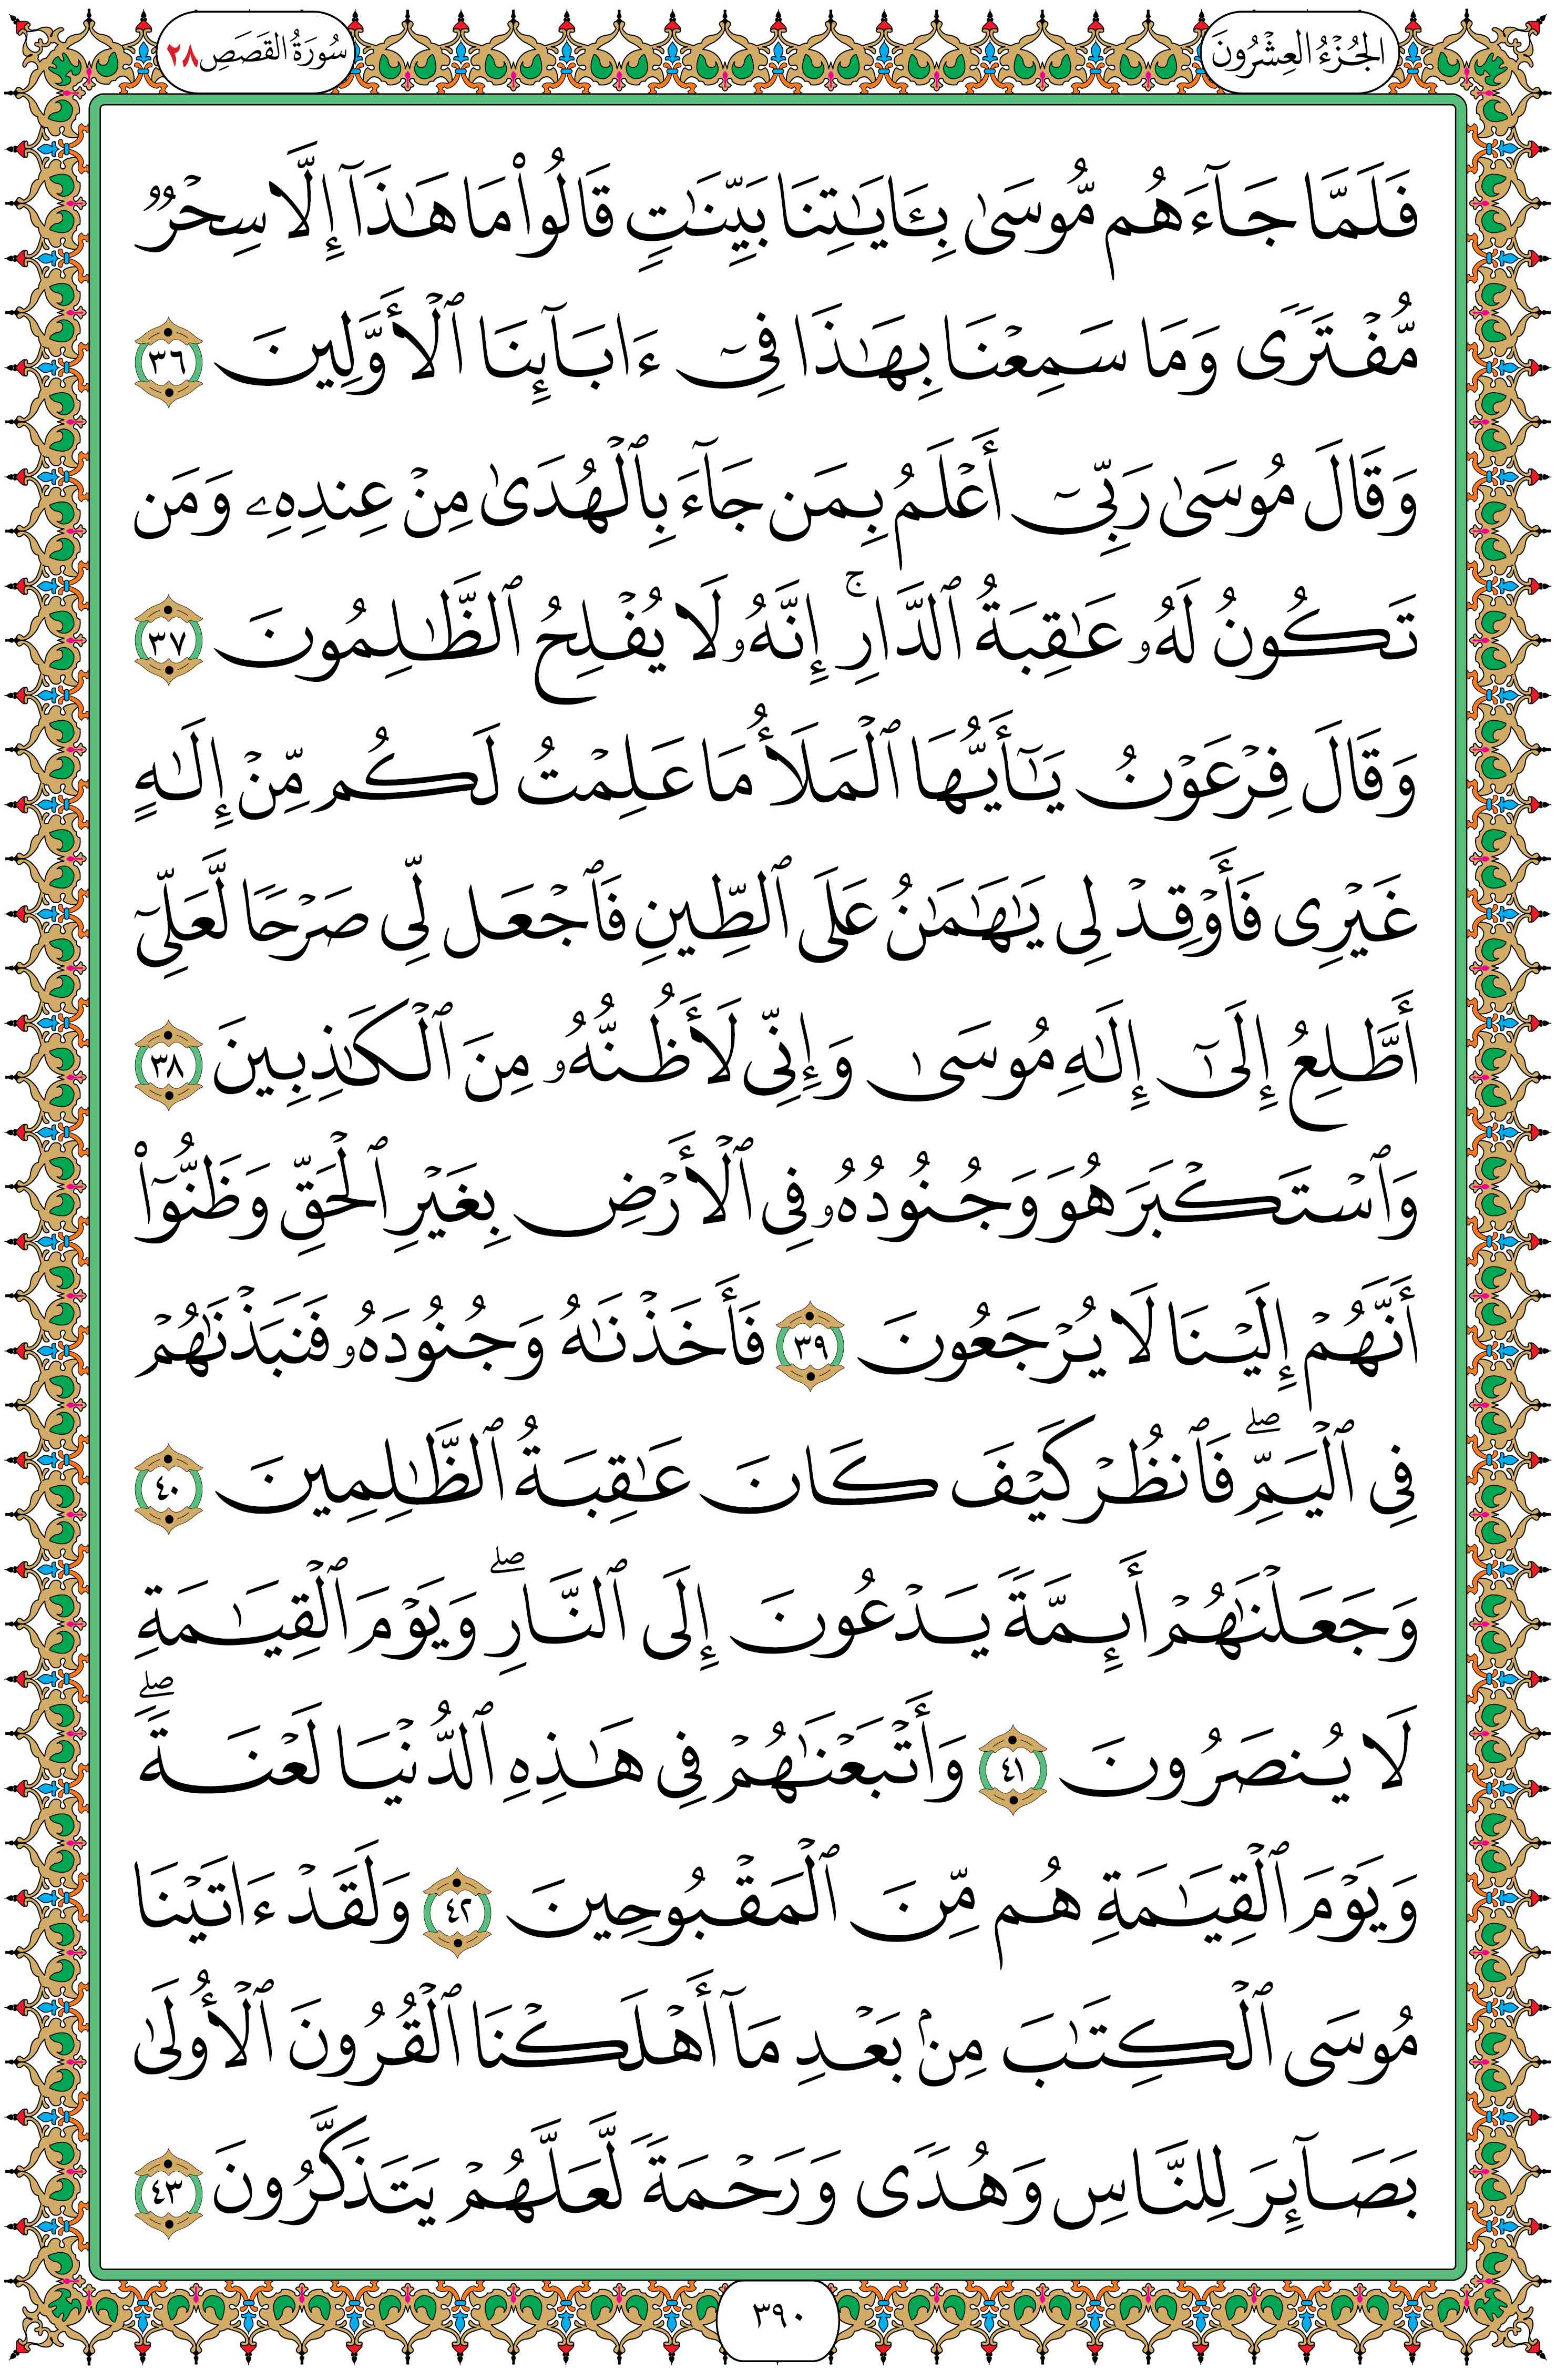 الجُزْءُ العِشْرُونَ
سُورَةُ القَصَصِ ٢٨
فَلَمَّا جَآءَهُم مُّوسَىٰ بِـَٔايَـٰتِنَا بَيِّنَـٰتٍ قَالُوا۟ مَا هَـٰذَآ إِلَّا سِحْرٌ
مُّفْتَرًى وَمَا سَمِعْنَا بِهَـٰذَا فِىٓ ءَابَآئِنَا ٱلْأَوَّلِينَ ٣٦
وَقَالَ مُوسَىٰ رَبِّىٓ أَعْلَمُ بِمَن جَآءَ بِٱلْهُدَىٰ مِنْ عِندِهِۦ وَمَن
تَكُونُ لَهُۥ عَـٰقِبَةُ ٱلدَّارِ ۚ إِنَّهُۥ لَا يُفْلِحُ ٱلظَّـٰلِمُونَ ٣٧
وَقَالَ فِرْعَوْنُ يَـٰٓأَيُّهَا ٱلْمَلَأُ مَا عَلِمْتُ لَكُم مِّنْ إِلَـٰهٍ
غَيْرِى فَأَوْقِدْ لِى يَـٰهَـٰمَـٰنُ عَلَى ٱلطِّينِ فَٱجْعَل لِّى صَرْحًا لَّعَلِّىٓ
أَطَّلِعُ إِلَىٰٓ إِلَـٰهِ مُوسَىٰ وَإِنِّى لَأَظُنُّهُۥ مِنَ ٱلْكَـٰذِبِينَ ٣٨
وَٱسْتَكْبَرَ هُوَ وَجُنُودُهُۥ فِى ٱلْأَرْضِ بِغَيْرِ ٱلْحَقِّ وَظَنُّوٓا۟
أَنَّهُمْ إِلَيْنَا لَا يُرْجَعُونَ ٣٩ فَأَخَذْنَـٰهُ وَجُنُودَهُۥ فَنَبَذْنَـٰهُمْ
فِى ٱلْيَمِّ ۖ فَٱنظُرْ كَيْفَ كَانَ عَـٰقِبَةُ ٱلظَّـٰلِمِينَ ٤٠
وَجَعَلْنَـٰهُمْ أَئِمَّةً يَدْعُونَ إِلَى ٱلنَّارِ ۖ وَيَوْمَ ٱلْقِيَـٰمَةِ
لَا يُنصَرُونَ ٤١ وَأَتْبَعْنَـٰهُمْ فِى هَـٰذِهِ ٱلدُّنْيَا لَعْنَةً ۖ
وَيَوْمَ ٱلْقِيَـٰمَةِ هُم مِّنَ ٱلْمَقْبُوحِينَ ٤٢ وَلَقَدْ ءَاتَيْنَا
مُوسَى ٱلْكِتَـٰبَ مِنۢ بَعْدِ مَآ أَهْلَكْنَا ٱلْقُرُونَ ٱلْأُولَىٰ
بَصَآئِرَ لِلنَّاسِ وَهُدًى وَرَحْمَةً لَّعَلَّهُمْ يَتَذَكَّرُونَ ٤٣
٣٩٠